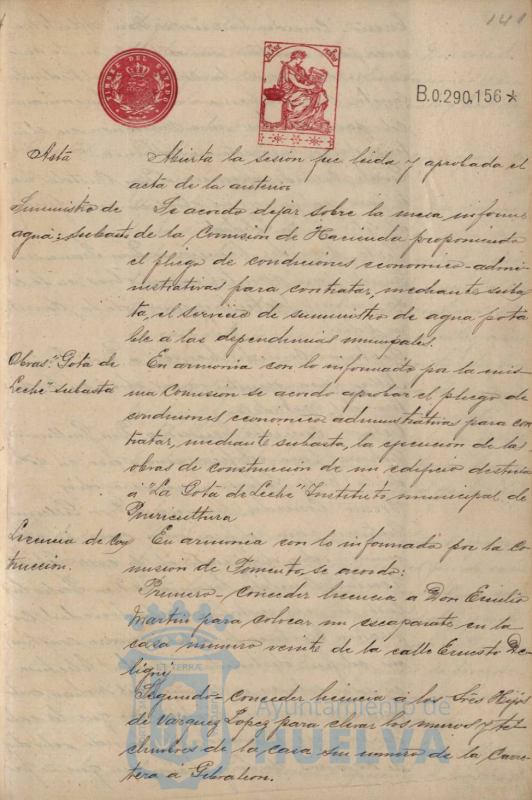 141
TIMBRE DEL ESTADO
B.0.290,156*
Acta
Abierta la sesión fue leida y aprobada el
acta de la anterior
Suministro de
agua; subasta
Se acordo dejar sobre la mesa informe
de la Comisión de Hacienda proponiendo
el pliego de condiciones economico-admi-
nistrativas para contratar, mediante subas-
ta, el servicio de suministro de agua pota-
ble á las dependencias municipales.
Obras "Gota de
Leche" subasta
En armonia con lo informado por la mis-
ma Comisión se acordo aprobar el pliego de
condiciones económico administrativas para con-
tratar, mediante subasta, la ejecución de las
obras de construcción de un edificio destinado
á "La Gota de Leche" Instituto municipal de
Puericultura
Licencia de Cons
trucción.
En armonia con lo informado por la Co-
misión de Fomento, se acordo:
Primero- conceder licencia a Don Emilio
Martin para colocar un escaparate en la
casa numero veinte de la calle Ernesto De-
ligny
Segundo- conceder licencia á los Sres Hijos
de Vazquez Lopez para elevar los muros y te-
chumbres de la casa sin numero de la Carre-
tera á Gibraleon.
Ayuntamiento de
HUELVA